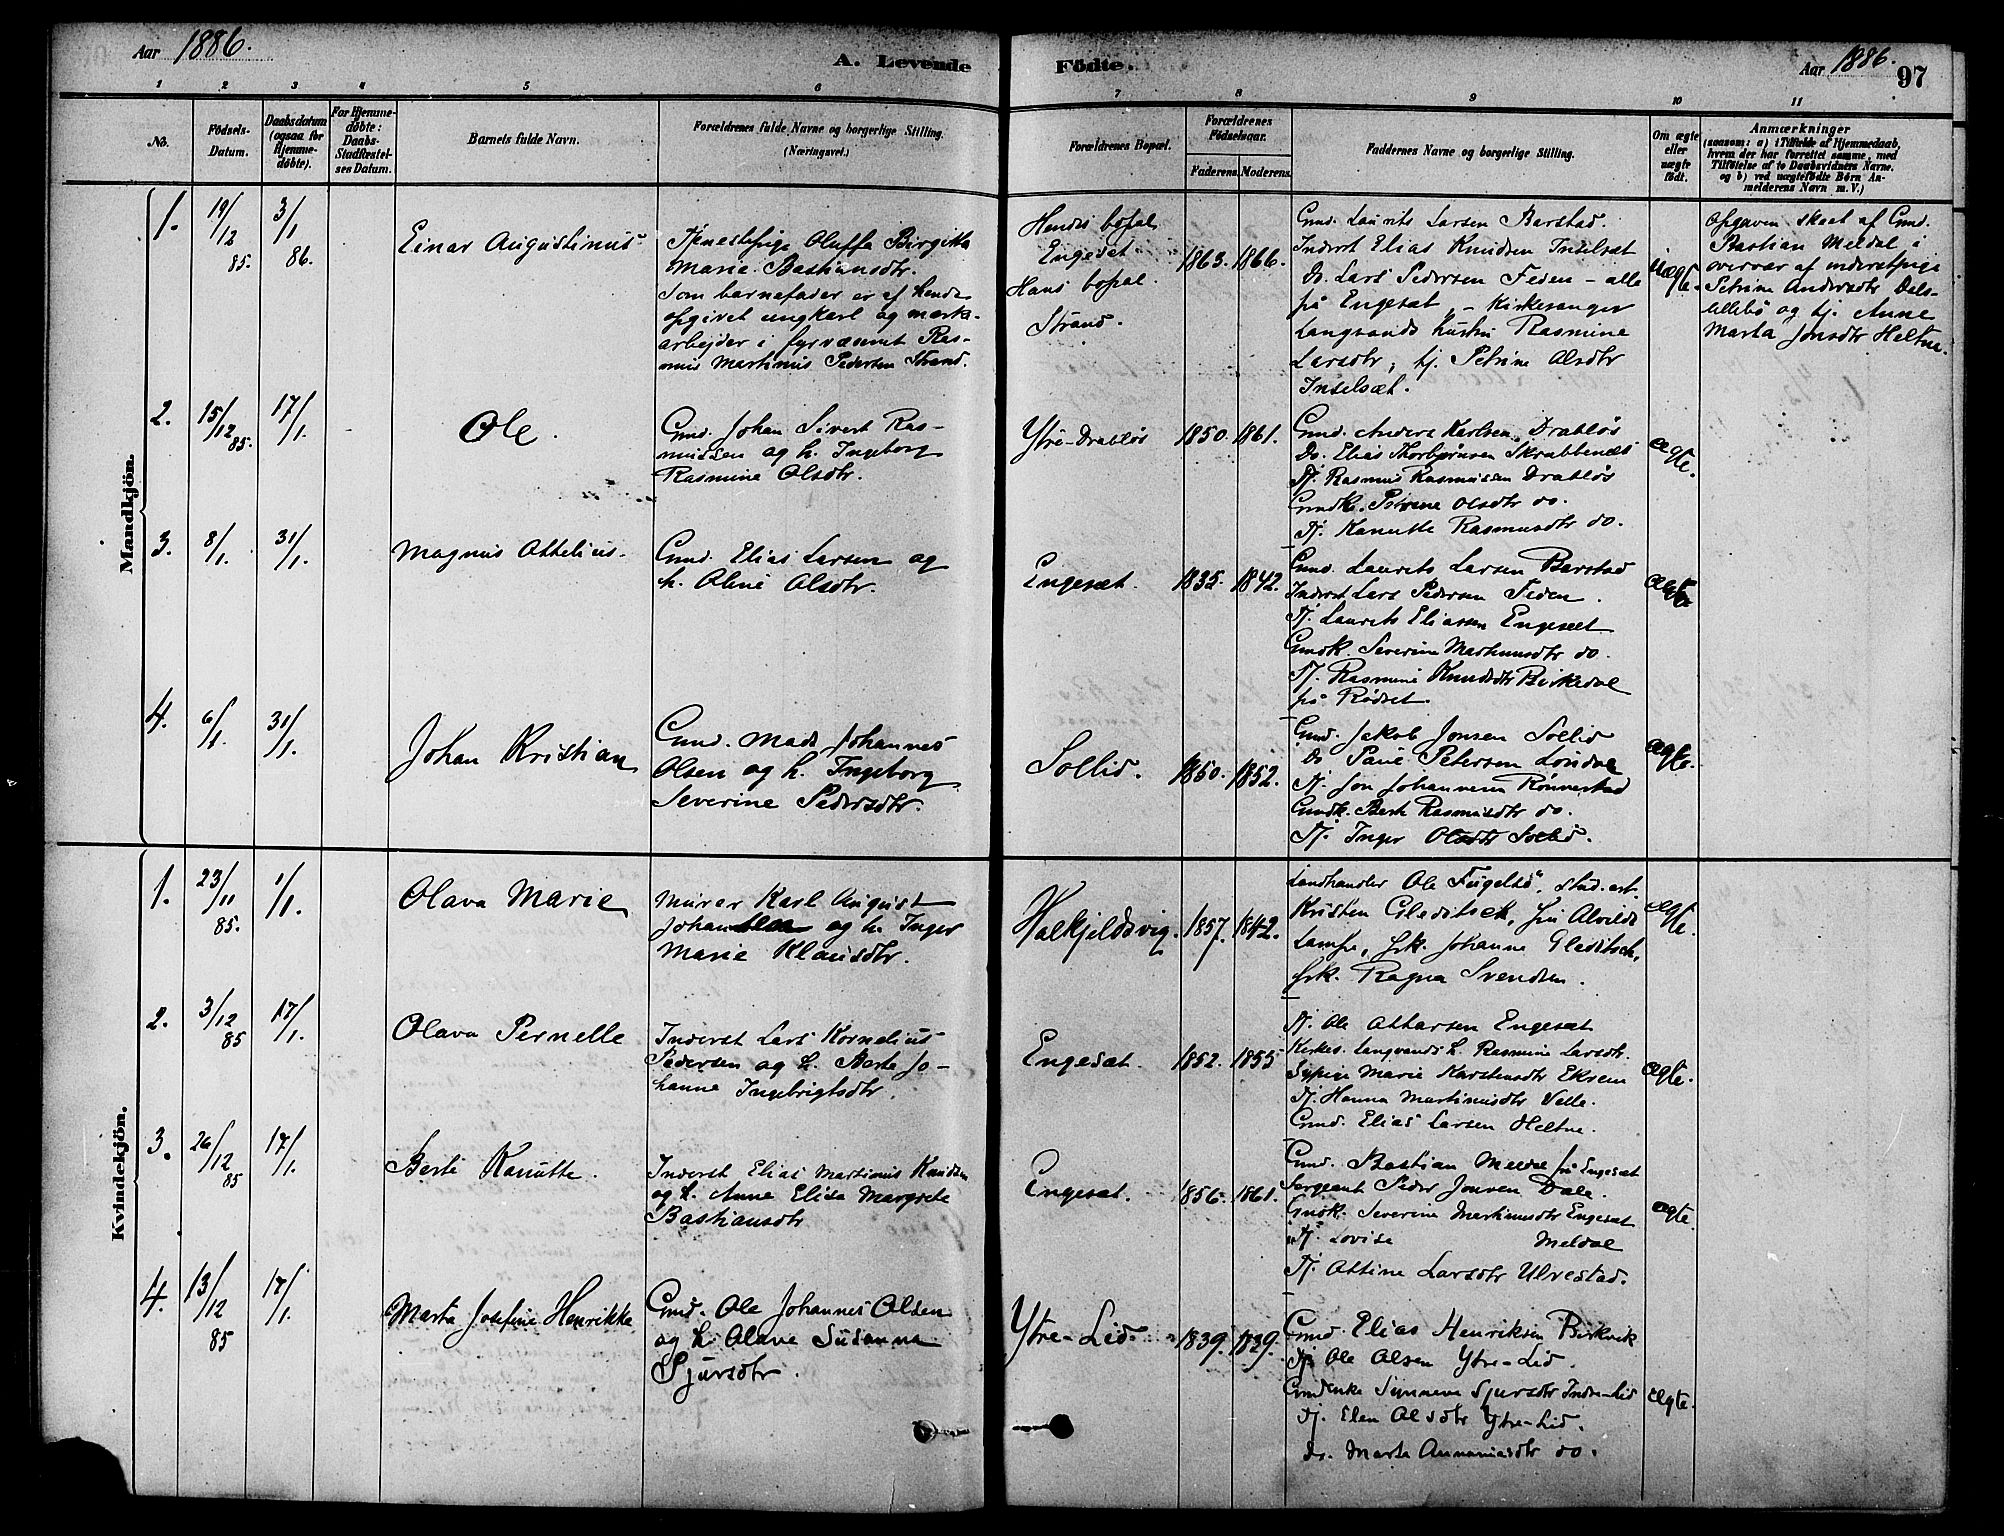 Aar 1886.
A. Levende Födte.
Aar 1886.
97
1 2 3 4 5 6 7 8 9 10 11
No.
Födsels-
Datum.
Daabsdatum
(ogsaa for
Hjemme-
döbte).
For Hjemme-
döbte:
Daabs-
Stadfæstel-
ses Datum.
Barnets fulde Navn.
Forældrenes fulde Navne og borgerlige Stilling.
(Næringsvei.)
Forældrenes Bopæl.
Forældrenes
Födselsaar.
Faderens. Moderens.
Faddernes Navne og borgerlige Stilling.
Om ægte
eller
uægte
födt.
Anmærkninger
(saasom: a) i Tilfælde af Hjemmedaab,
hvem der har forrettet samme, med
Tilföielse af to Daabsvidners Navne.
og b) ved uægtefödte Börn An-
melderens Navn m. V.)
Mandkjön.
1.
19/12 85.
3/1 86.
Einar Augustinus
Tjenestepige Oluffa Birgitta
Marie Bastiansdtr.
Som barnefader er af hende
opgivet ungkarl og mark-
arbejder i fyrvæsenet Ras-
mus Martinus Pedersen Strand.
Hendes bopæl
Engesæt
Hans bopæl
Strand.
1863. 1866.
Gmd. Laurits Larsen Barstad.
Inderst Elias Knudsen Inselsæt
Do. Lars Pedersen Feden - alle
på Engesæt, - Kirkesanger
Langvands hustru Rasmine
Larsdtr, tj. Petrine Olsdtr
Inselsæt.
Uægte.
Opgaven skeet af Gmd.
Bastian Meldal i
overvær af inderstpige
Petrine Andersdtr Dals-
lillebö og tj. Anne
Marta Jonsdtr Heltne.
2.
15/12 85.
17/1.
Ole.
Gmd. Johan Sivert Ras-
mussen og h. Ingeborg
Rasmine Olsdtr.
Ytre-Drabløs
1850. 1861.
Gmd. Anders Karlsen Drabløs
Do. Elias Thorbjørnsen Skrabbenæs
Tj. Rasmus Rasmussen Drabløs
Gmdk. Petrine Olsdtr do.
Tj. Kanutte Rasmusdtr do.
ægte.
3.
8/1.
31/1.
Magnus Ottelius.
Gmd. Elias Larsen og
h. Oline Olsdtr.
Engesæt.
1835. 1842.
Gmd. Laurits Larsen Barstad
Inderst Lars Pedersen Feden.
Tj. Laurits Eliassen Engesæt
Gmdk. Severine Martinusdtr do.
Tj. Rasmine Knudsdtr Birkedal
på Rødset.
ægte
4.
6/1.
31/1.
Johan Kristian
Gmd. Mads Johannes
Olsen og h. Ingeborg
Severine Pedersdtr.
Sollid.
1850. 1852.
Gmd. Jakob Jonsen Sollid
Do Paul Petersen Løndal
Tj. Jon Johannesen Rønnestad
Gmdk. Berte Rasmusdtr do.
Tj. Inger Olsdtr Sollid.
ægte.
Kvindekjön.
1.
23/11 85.
1/1.
Olava Marie
Murer Karl August
Johansen og h. Inger
Marie Klausdtr.
Halkjeldsvig.
1857. 1842.
Landhandler Ole Fugelbö, stud. art.
Kristen Gleditsch, fru Alvilde
Lampe, frk. Johanne Gleditsch,
frk. Ragna Svendsen.
ægte.
2.
3/12 85
17/1.
Olava Pernelle
Inderst Lars Kornelius
Pedersen og h. Berte Jo-
hanne Ingebrigtsdtr.
Engesæt.
1852. 1855
Tj. Ole Ottarsen Engesæt
Kirkes. Langvands h. Rasmine Larsdtr.
Sypige Marie Karstensdtr Ekrem
Tj. Hanna Martinusdtr Velle.
Gmd. Elias Larsen Heltne.
ægte.
3.
26/12 85
17/1.
Berte Kanutte.
Inderst Elias Martinus Knudsen
og h. Anne Elisa Margrete
Bastiansdtr
Engesæt.
1856. 1861.
Gmd. Bastian Meldal fra Engesæt
Sergeant Peder Jonsen Dale.
Gmdk. Severine Martinusdtr Engesæt
Tj. Lovise Meldal
Tj. Ottine Larsdtr Ulvestad.
ægte.
4.
13/12 85
17/1.
Marta Josefine Henrikke
Gmd. Ole Johannes Olsen
og h. Olave Susanna
Sjursdtr.
Ytre-Lid.
1839. 1839.
Gmd. Elias Henriksen Birkvik
Tj. Ole Olsen Ytre-Lid.
Gmdenke Synneve Sjursdtr Indre-Lid
Tj. Elen Olsdtr Ytre-Lid.
Do. Marta Annaniasdtr do.
ægte.